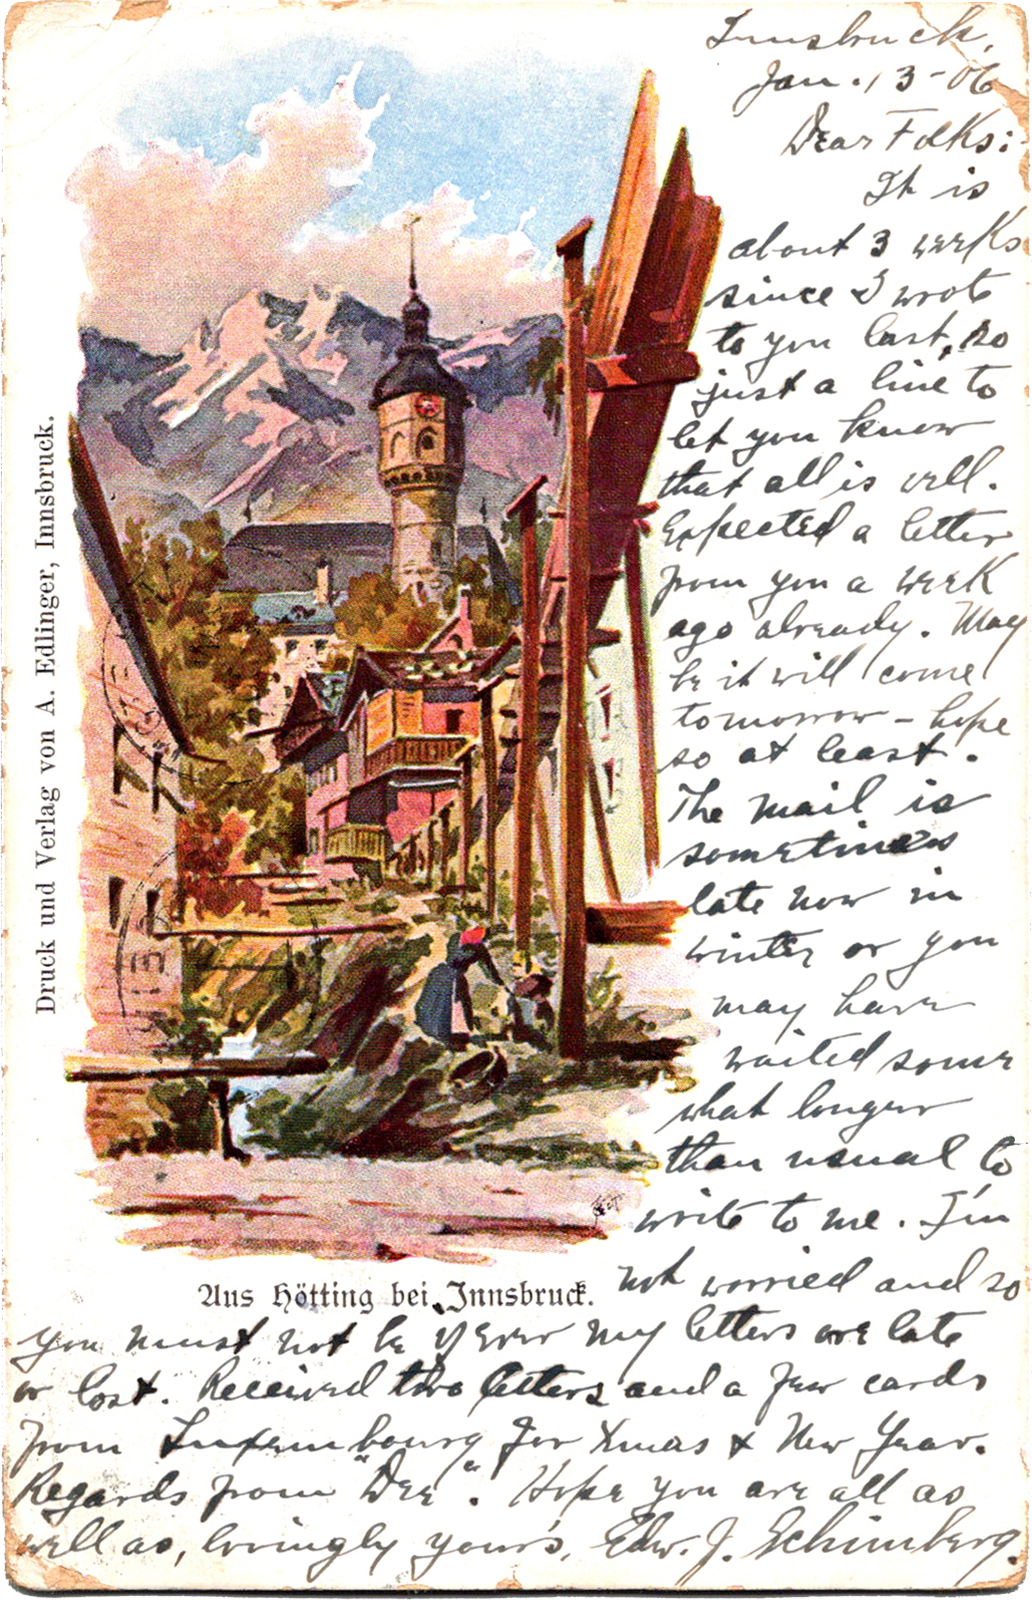 Innsbruck,
Jan. 13-06
Dear Folks:
It is
about 3 weeks
since I wrote
to you last, so
just a line to
let you know
that all is well.
Expected a letter
from you a week
ago already. May
be it will come
tomorrow - hope
so at least.
The mail is
sometimes
late now in
winter or you
may have
waited some
what longer
than usual to
write to me. I'm
not worried and so
you must not be if ever my letters are late
or lost. Received two letters and a few cards
from Luxembourg for Xmas & New Year.
Regards from "Dee". Hope you are all as
well as, lovingly yours, Edw. J. Schimberg.
Aus Hötting bei Innsbruck.
Druck und Verlag von A. Edlinger, Innsbruck.